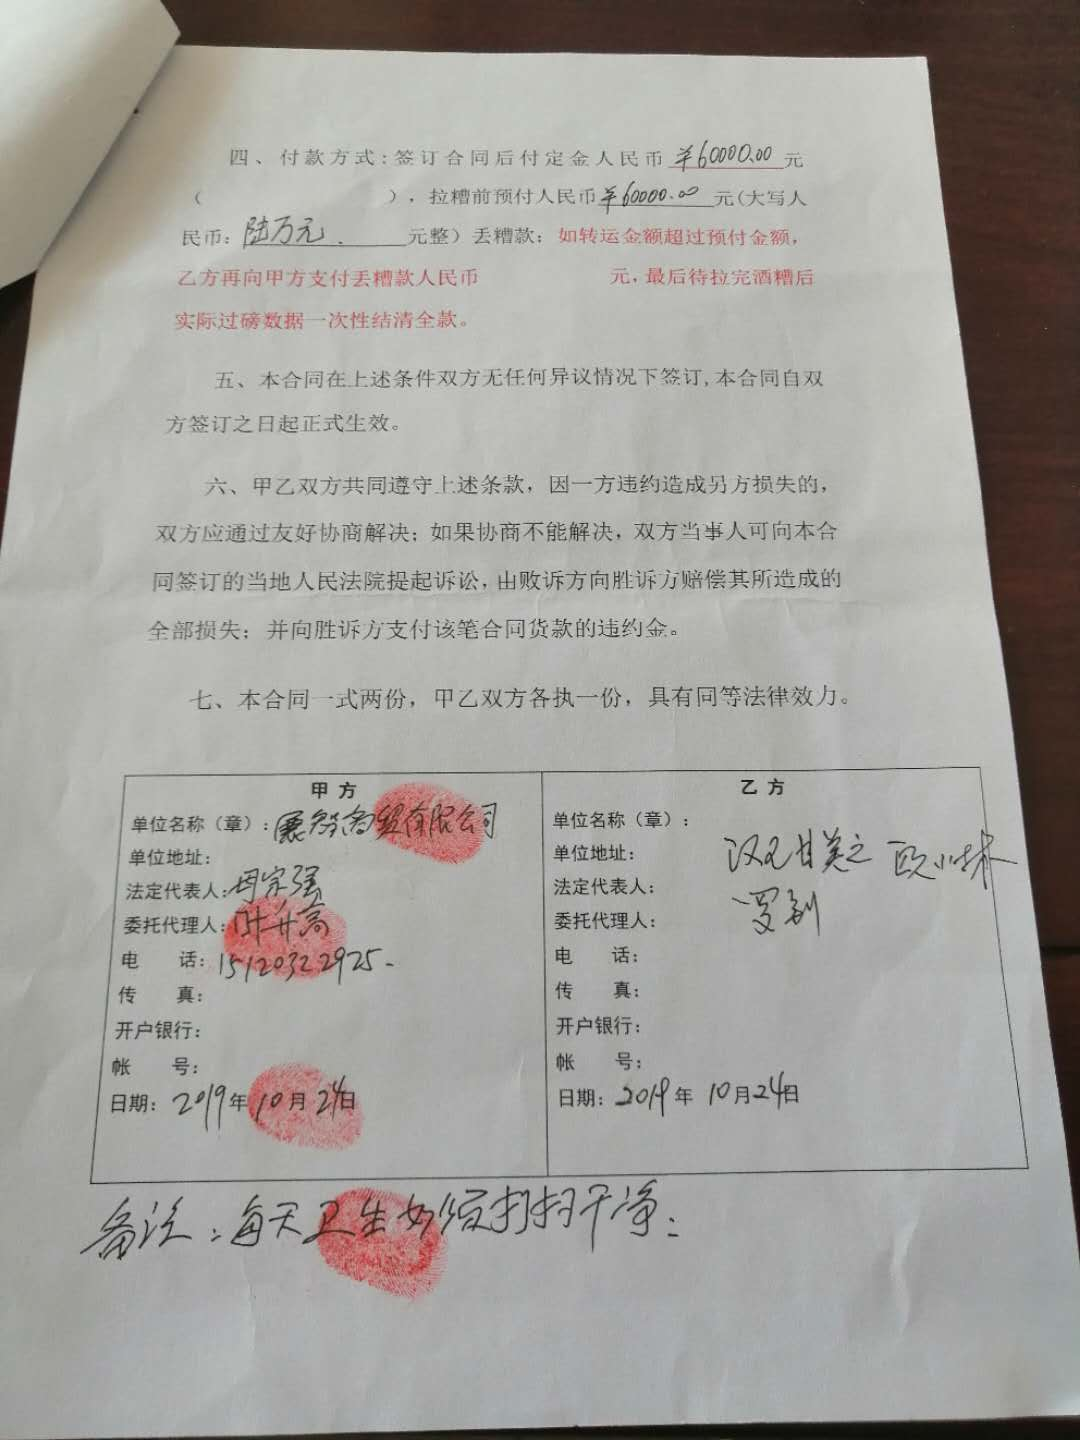 四、付款方式:签订合同后付定金人民币 ¥60000.00 元
（ ），拉糟前预付人民币 ¥60000.00 元(大写人
民币：陆万元 元整）丢糟款：如转运金额超过预付金额，
乙方再向甲方支付丢糟款人民币 元,最后待拉完酒糟后
实际过磅数据一次性结清全款。
五、本合同在上述条件双方无任何异议情况下签订,本合同自双
方签订之日起正式生效。
六、甲乙双方共同遵守上述条款，因一方违约造成另方损失的，
双方应通过友好协商解决；如果协商不能解决，双方当事人可向本合
同签订的当地人民法院提起诉讼,由败诉方向胜诉方赔偿其所造成的
全部损失；并向胜诉方支付该笔合同货款的违约金。
七、本合同一式两份，甲乙双方各执一份，具有同等法律效力。
甲 方
单位名称（章）：商贸有限公司
单位地址：
法定代表人：
委托代理人：升高
电 话：15120322925
传 真：
开户银行：
帐 号：
日期：2019年10月24日
乙 方
单位名称（章）：
单位地址：
法定代表人：
委托代理人：
电 话：
传 真：
开户银行：
帐 号：
日期：2019年10月24日
备注：每天卫生必须打扫干净；